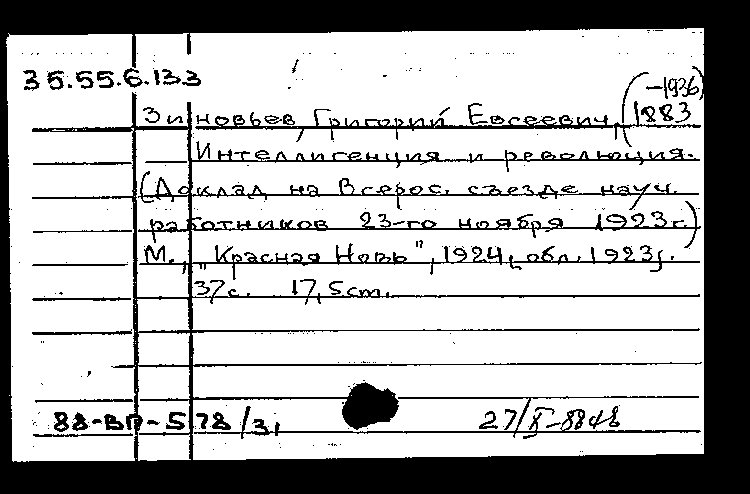 35.55.6.133
(-1936)
Зиновьев, Григорий Евсеевич, 1883
Интеллигенция и революция.
(Доклад на Всерос. съезде науч.
работников 23-го ноября 1923г.)
М., „Красная Новь", 1924, [обл. 1923].
37с. 17,5cm.
88-ВП-578/31